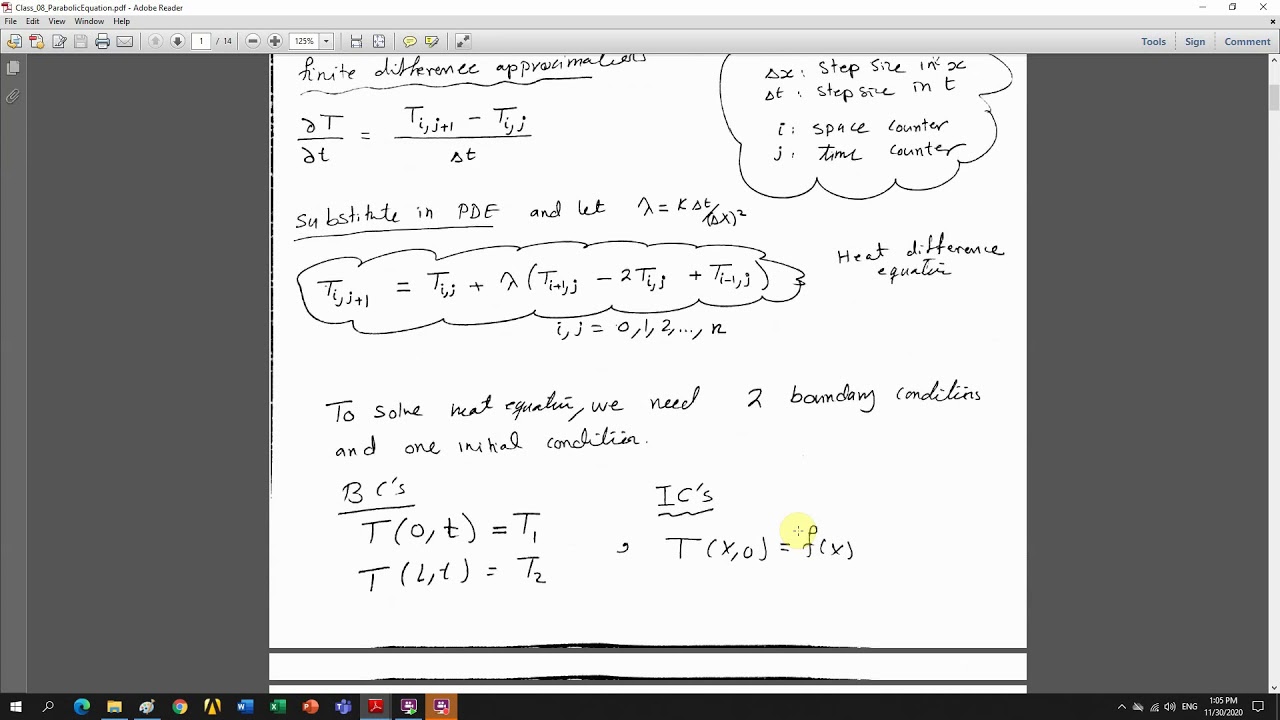 Class_08_ParabolicEquation.pdf - Adobe Reader
File Edit View Window Help
1 / 14 125% Tools Sign Comment
finite difference approximations
∂T/∂t = (T_{i,j+1} - T_{i,j})/Δt
Δx: step size in x
Δt: step size in t
i: space counter
j: time counter
substitute in PDE and let λ = K Δt/(Δx)²
T_{i,j+1} = T_{i,j} + λ(T_{i+1,j} - 2T_{i,j} + T_{i-1,j})
Heat difference
equation
i, j = 0, 1, 2, ..., n
To solve heat equation, we need 2 boundary conditions
and one initial condition.
BC's
T(0,t) = T₁
T(L,t) = T₂
IC's
, T(x,0) = f(x)
ENG
1:05 PM
11/30/2020